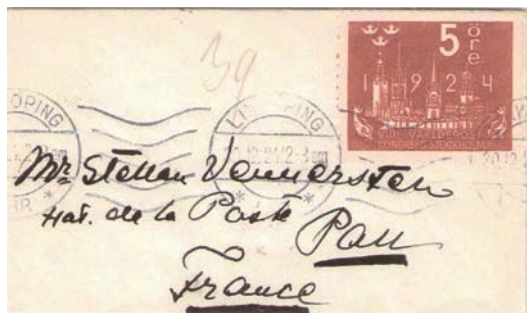 39
5 öre
1924
VIII VÄRLDSPOST
KONGRESS STOCKHOLM
LINKÖPING
Mr Stellan Vennersten
Hôt. de la Poste
Pau
France